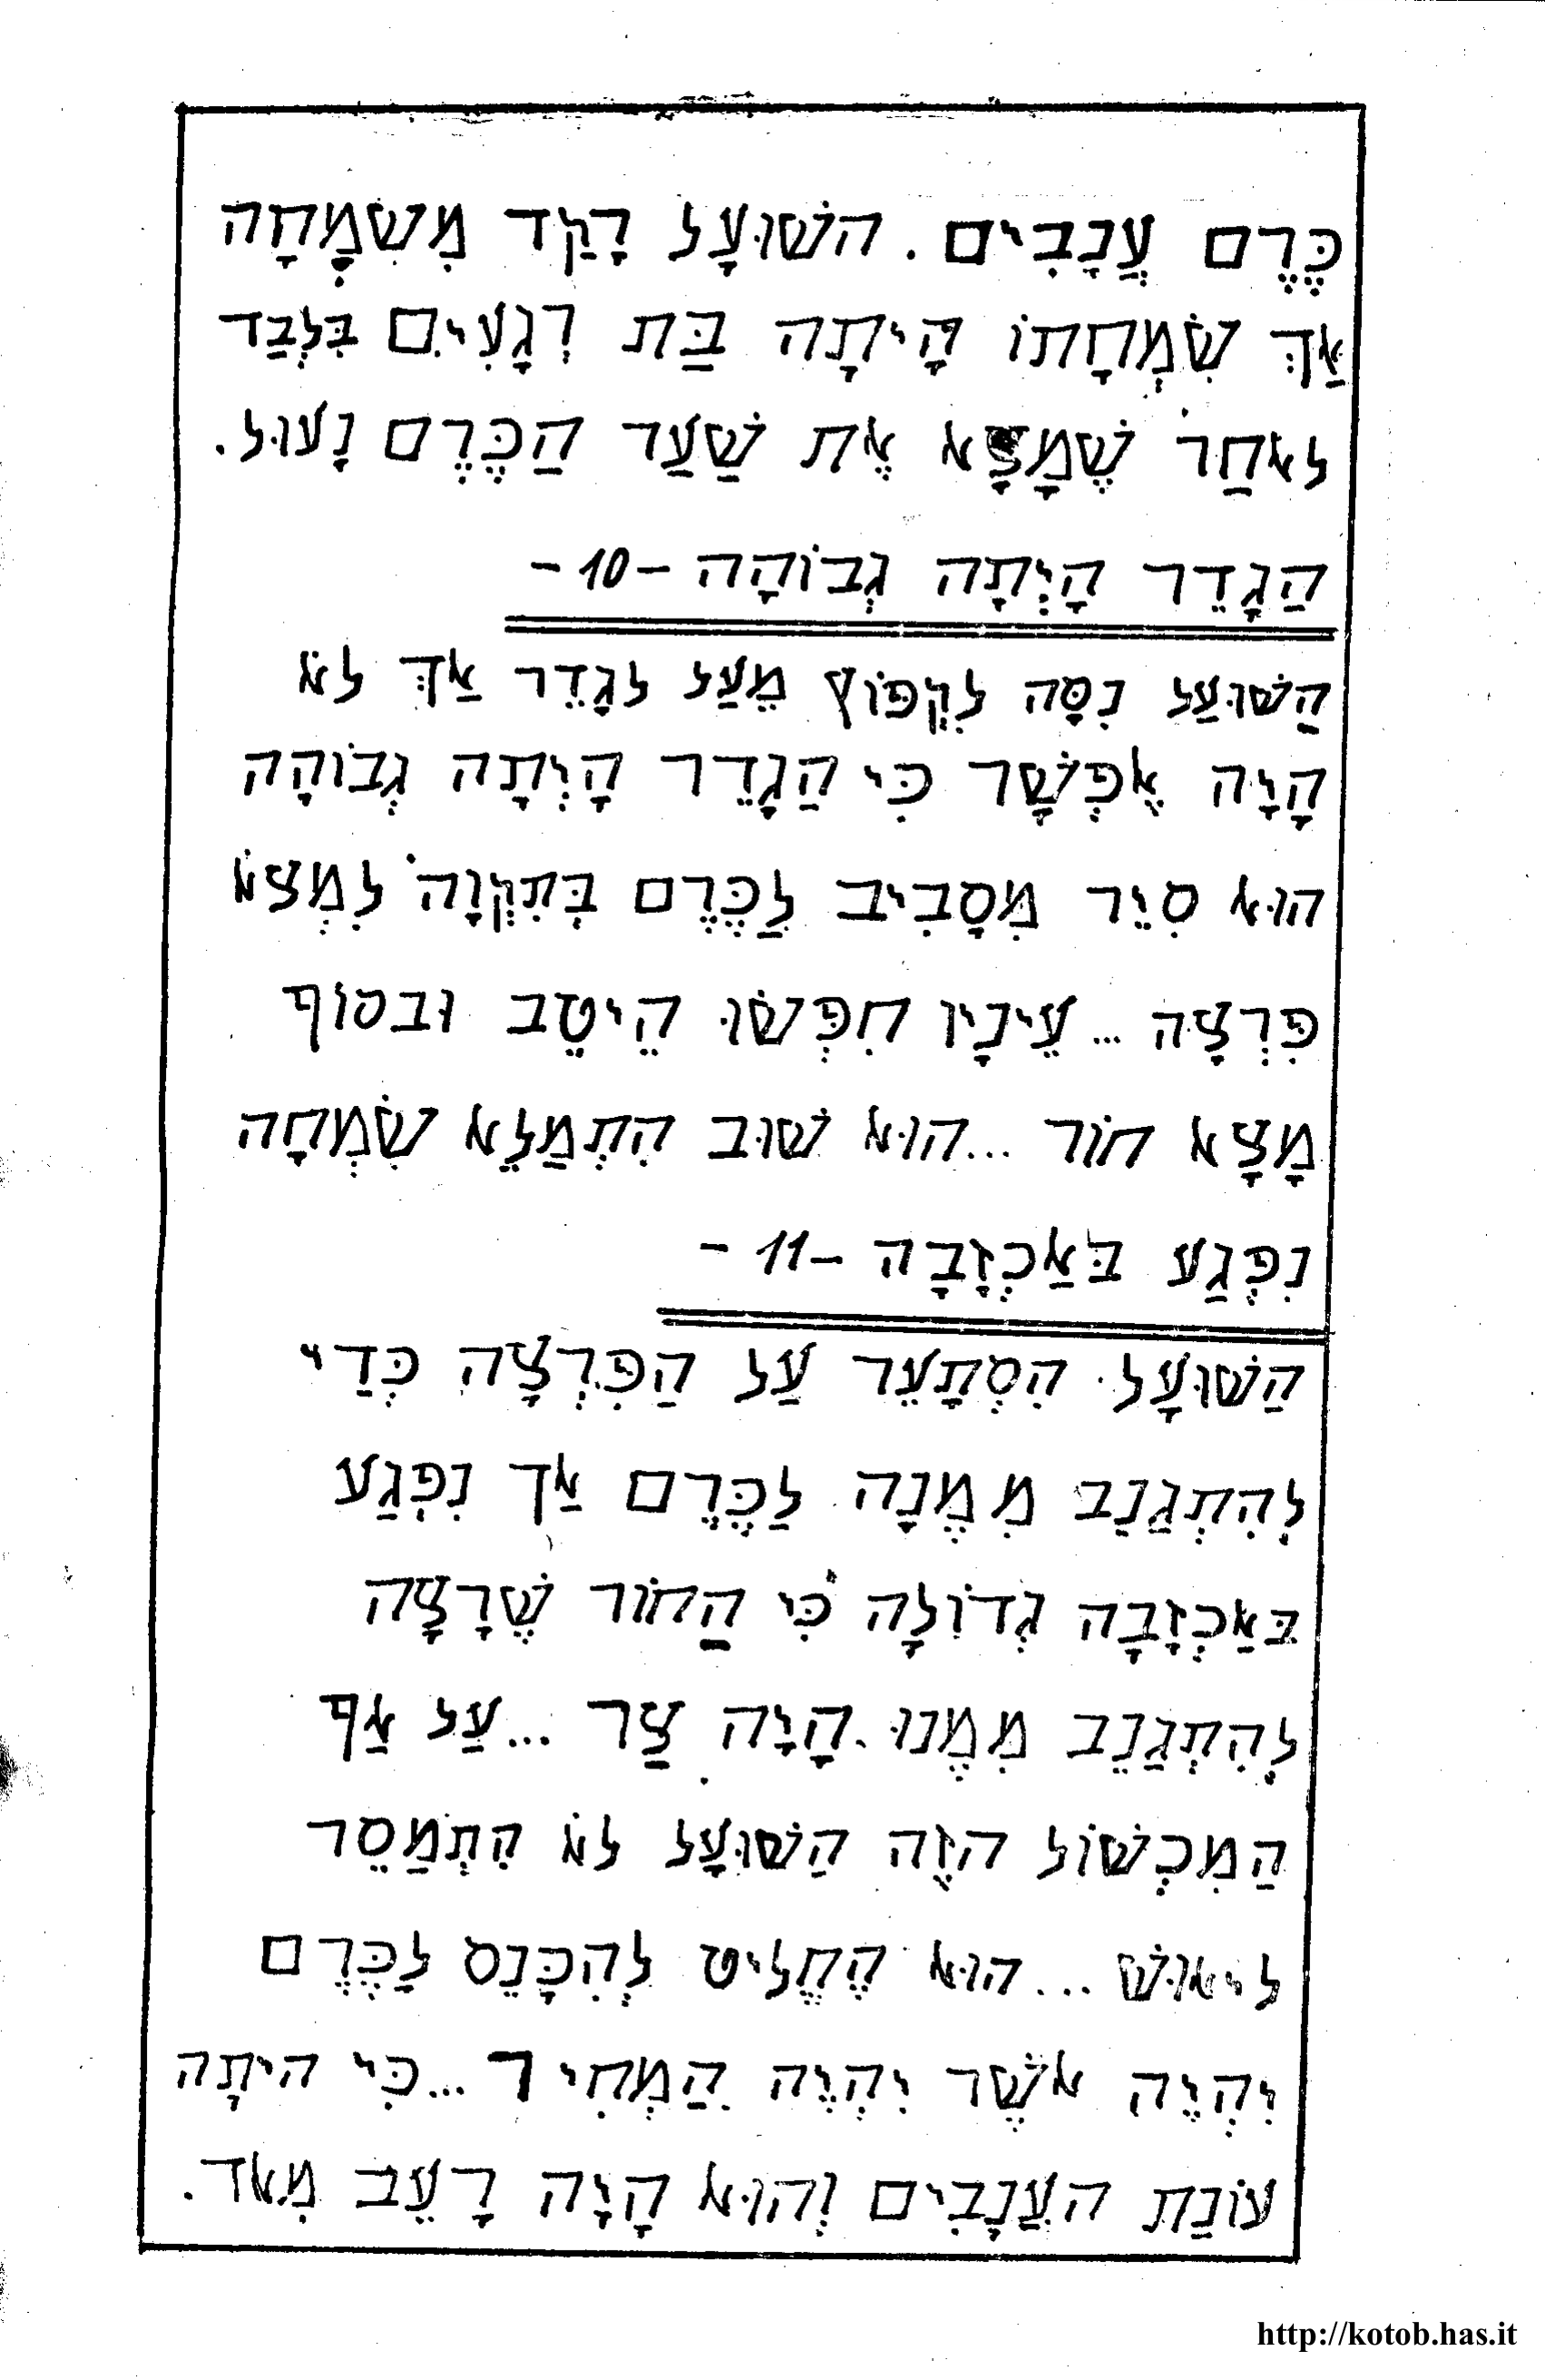 כֶּרֶם עֲנָבִים. השׁוּעָל רָקַד מִשִׂמְחָה
אַךְ שִׂמְחָתוֹ הָיתָה בַּת רְגָעִים בִּלְבַד
לאחַר שֶׁמָצָא אֶת שַׁעַר הַכֶּרֶם נָעוּל.
הַגָדֵר הָיְתָה גְבוֹהָה -10-
הַשׁוּעַל נִסָּה לִקְפּוֹץ מֵעַל לגָדֵר אַךְ לֹא
הָיָה אֶפְשָׁר כִּי הַגָדֵר הָיְתָה גְבוֹהָה
הוּא סִיֵר מִסָבִיב לַכֶּרֶם בְּתִקְוָה לִמְצֹא
פִּרְצָה ... עֵינָיו חִפְּשׂוּ הֵיטֵב וּבסוֹף
מָצָא חוֹר ... הוּא שׁוּב הִתְמַלֵא שִׂמְחָה
נִפְגַע בּאַכְזָבָה -11-
הַשׁוּעָל הִסְתָעֵר עַל הַפִּרְצָה כְּדַי
לְהִתְגַנַב מִמֶנָה לַכֶּרֶם אַך נִפְגַע
בּאַכְזָבָה גְדוֹלָה כִּי הַחוֹר שֶׁרָצָה
לְהִתְגַנֵב מִמֶנוּ הָיָה צַר ... עַל אַף
הַמִכְשׁוֹל הזֶה הַשׁוּעָל לֹא הִתְמַסֵר
ליאוּשׁ ... הוּא הֶחֱליט לְהִכָּנֵס לַכֶּרֶם
יִהְיֵה אשֶׁר יִהְיֵה הַמְחִיר ... כִּי היתָה
עוֹנַת העֲנָבִים וְהוּא הָיָה רָעֵב מִאד.
http://kotob.has.it